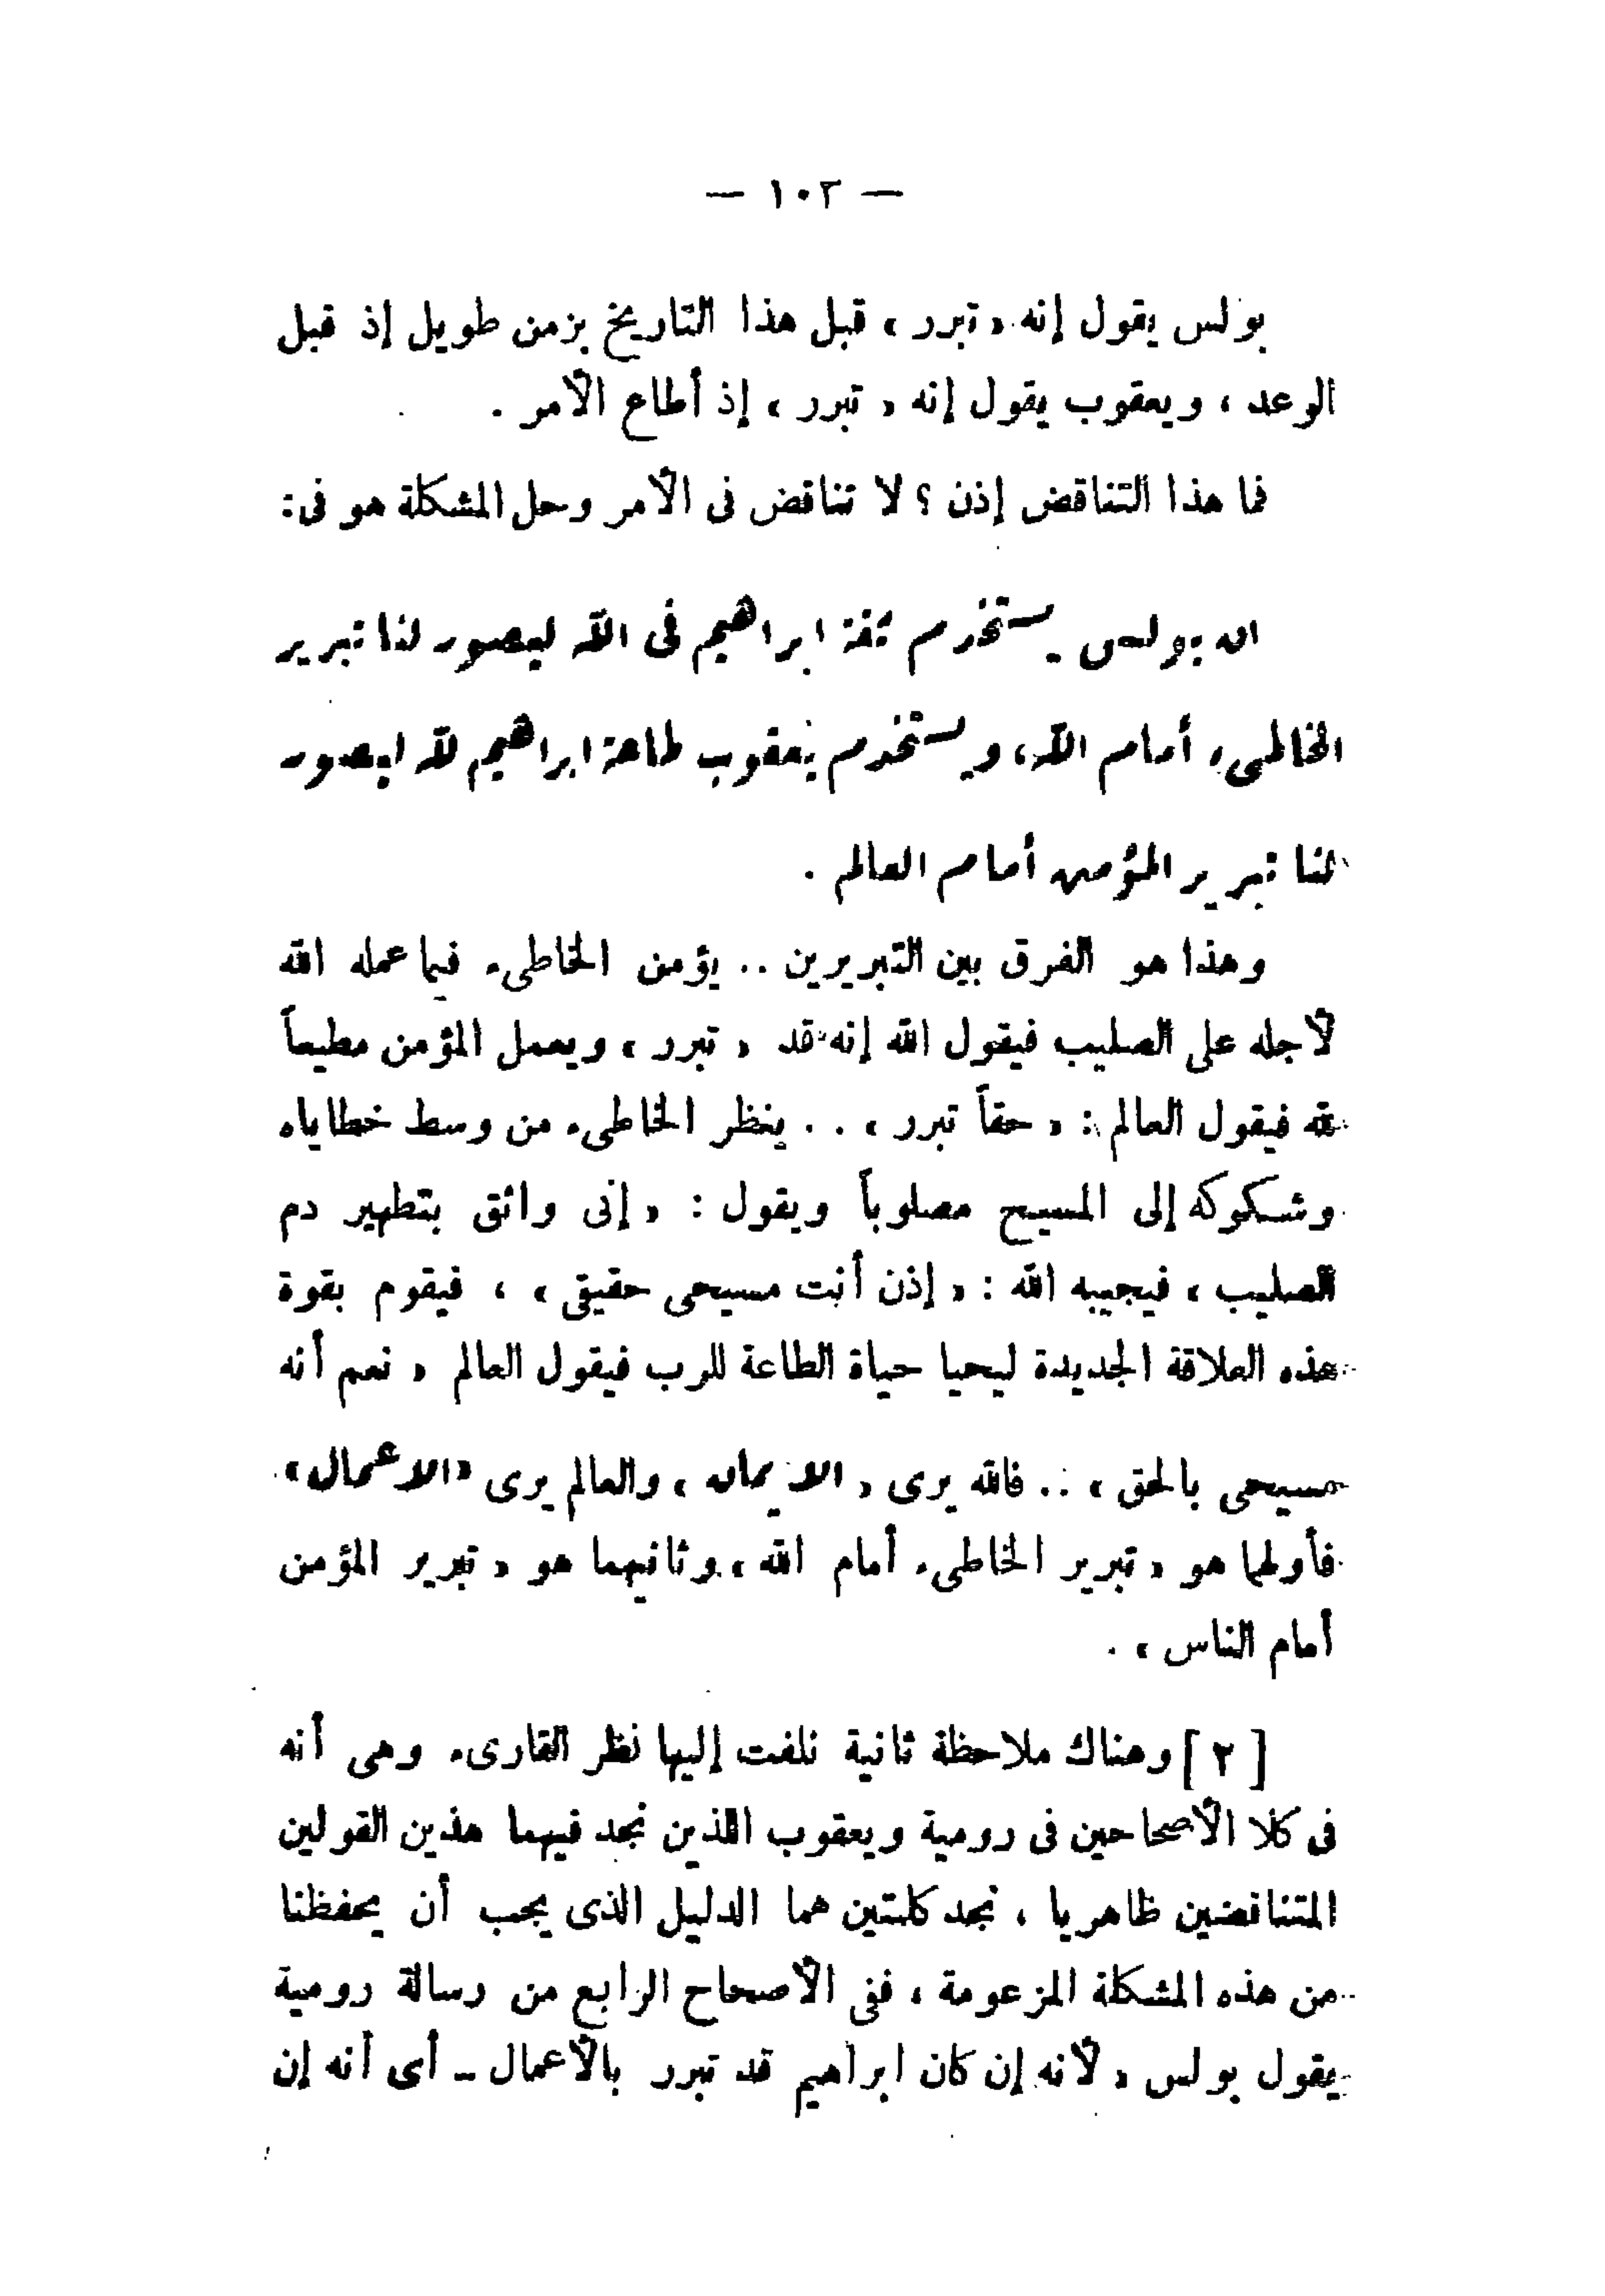 — ١٠٢ —
بولس يقول إنه « تبرر » قبل هذا التاريخ بزمن طويل إذ قبل
الوعد ، ويعقوب يقول إنه « تبرر » إذ أطاع الأمر .
فما هذا التناقض إذن ؟ لا تناقض فى الأمر وحل المشكلة هو فى :
ان بولس يستخدم ثقة ابراهيم فى الله ليصور لنا تبرير
الخاطىء أمام الله، ويستخدم يعقوب طاعة ابراهيم لله ليصور
لنا تبرير المؤمن أمام العالم .
وهذا هو الفرق بين التبريرين .. يؤمن الخاطىء فيما عمله الله
لأجله على الصليب فيقول الله إنه قد « تبرر » ويعمل المؤمن مطيعاً
لله فيقول العالم : « حقاً تبرر » . . ينظر الخاطىء من وسط خطاياه
وشكوكه إلى المسيح مصلوباً ويقول : « إنى واثق بتطهير دم
الصليب » فيجيبه الله : « إذن أنت مسيحى حقيقى » ، فيقوم بقوة
هذه العلاقة الجديدة ليحيا حياة الطاعة للرب فيقول العالم « نعم أنه
مسيحى بالحق » .. فالله يرى « الايمان » والعالم يرى «الاعمال»
فأولهما هو « تبرير الخاطىء أمام الله » وثانيهما هو « تبرير المؤمن
أمام الناس » .
[ ٢ ] وهناك ملاحظة ثانية نلفت إليها نظر القارىء وهى أنه
فى كلا الأصحاحين فى رومية ويعقوب اللذين نجد فيهما هذين القولين
المتناقضين ظاهريا ، نجد كلمتين هما الدليل الذى يجب أن يحفظنا
من هذه المشكلة المزعومة ، ففى الأصحاح الرابع من رسالة رومية
يقول بولس « لأنه إن كان ابراهيم قد تبرر بالأعمال - أى أنه إن